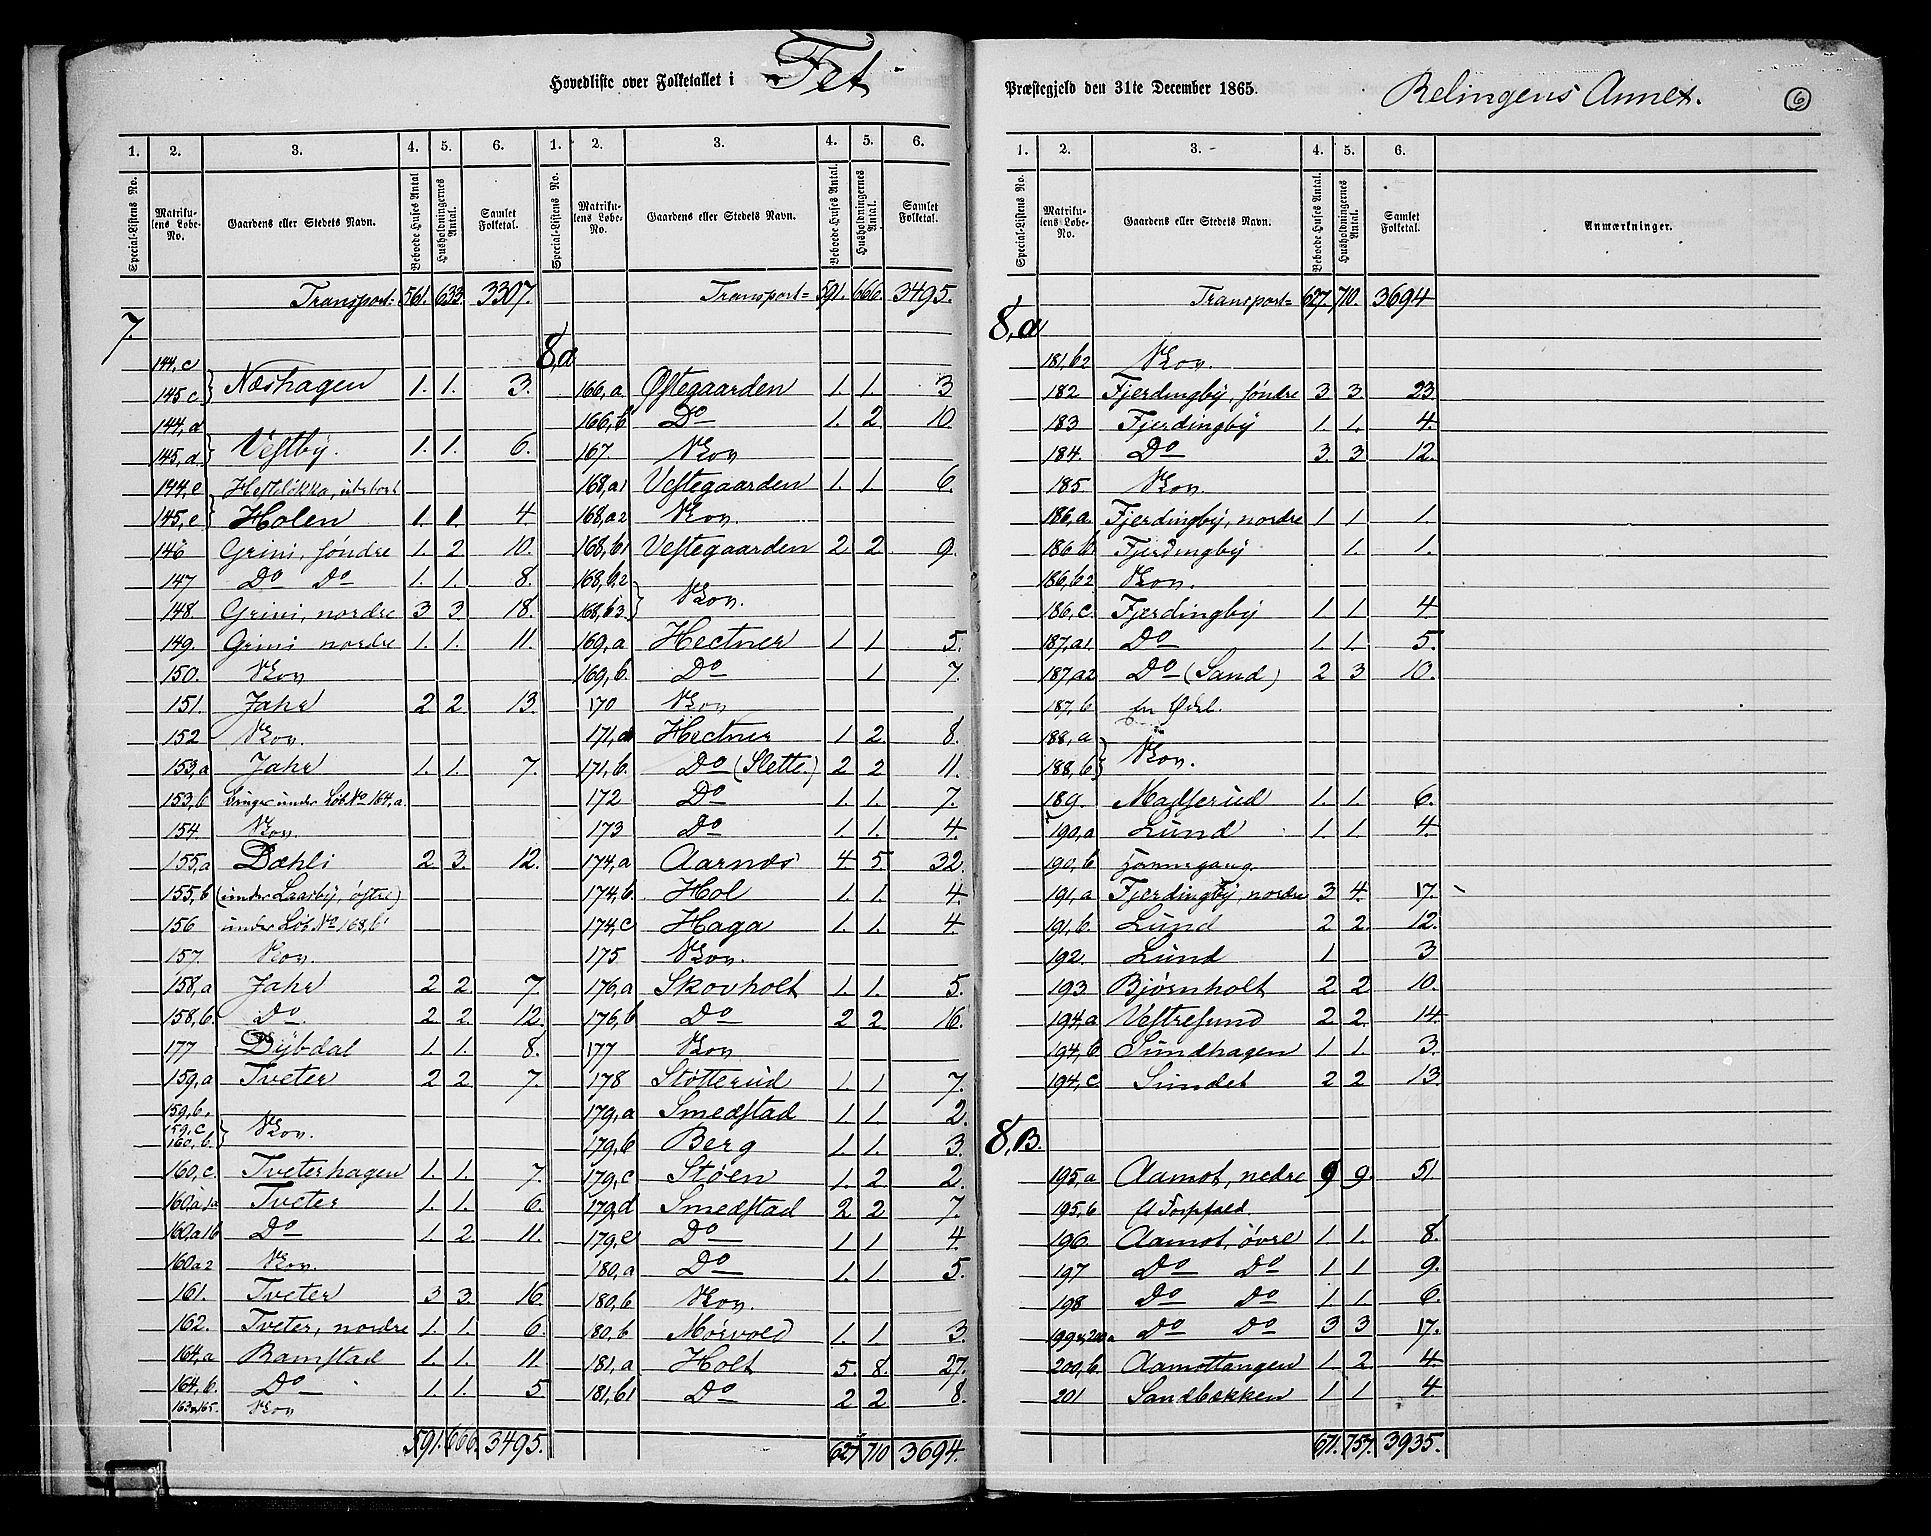 Hovedliste over Folketallet i Fet
1. 2. 3. 4. 5. 6. 1. 2. 3. 4. 5. 6.
Special-Listens No. Matrikulens Løbe-No. Gaardens eller Stedets Navn. Beboede Huses Antal Husholdningernes Antal. Samlet Folketal. Special-Listens No. Matrikulens Løbe-No. Gaardens eller Stedets Navn. Beboede Huses Antal. Husholdningernes Antal. Samlet Folketal.
Transport= 561. 633. 3307.
7.
144,c
145 c } Næshagen 1. 1. 3.
144, d
145, d } Vestby. 1. 1. 6.
144, e
145, e } Holen 1. 1. 4
146 Grini, søndre 1. 2 10.
147 Do Do 1. 1. 8.
148. Grini, nordre 3 3 18.
149. Grini nordre 1. 1. 11.
150. Vkov
151. Jahr 2 2. 13.
152 Vkov.
153, a Jahr 1. 1. 7.
153, b bruges under Løb No 164, a.
154. Vkov.
155, a Dæhli 2 3. 12.
155, b (under Laasby, østre)
156 under Løb No 168, b1
157. Vkov.
158, a Jahr 2 2 7.
158, b. Do. 2 2. 12.
177 Dybdal 1. 1. 8.
159, a Tveter 2 2 7.
159, b.
159, c
160, b. } Vkov.
160, c. Tveterhagen 1. 1. 7.
160, a 1a Tveter 1. 1. 6.
160, a 1b Do 1. 2. 11.
160 a 2 Vkov.
161. Tveter 3 3. 16.
162. Tveter, nordre 1. 1. 6.
164, a Ramstad 1. 1. 11.
164, b. Do 1. 1. 5
163 & 165. Vkov
591. 666. 3495.
Transport= 591. 666. 3495.
8, a
166, a Østegaarden 1. 1. 3
166, b Do 1. 2 10.
167 Vkov
168, a1 Vestegaarden 1. 1 6.
168, a2 Vkov.
168, b1 Vestegaarden 2 2 9.
168, b2
168, b3 } Vkov.
169, a Hectner 1. 1 5.
169, b. Do 1 7.
170 Vkov
171, a Hectner 1 2 8.
171, b. Do (Slette.) 2 2 11.
172 Do 1. 1. 7.
173 Do 1. 1. 4.
174, a Aarnæs 4. 5. 32.
174, b. Hol 1. 1. 4.
174, c Haga 1. 1. 4
175 Vkov.
176, a Skovholt 1. 1. 5.
176, b Do 2 2 16.
177 Vkov
178 Støtterud 1. 1 7.
179, a Smedstad 1. 1. 2.
179, b Berg 1. 1. 3.
179, c Støen 1. 2 2.
179, d Smedstad 2 2 7.
179, e Do 1 1 4.
180, a Do 1. 1 5.
180, b Vkov.
180, b Mørvold 1. 1 3.
181, a Holt 5. 8. 27.
181, b1 Do 2 2 8.
627. 710 3694.
Præstegjeld den 31te December 1865. Relingens Annex. 6
1. 2. 3. 4. 5. 6.
Special-Listens No. Matrikulens Løbe-No. Gaardens eller Stedets Navn. Beboede Huses Antal. Husholdningernes Antal. Samlet Folketal. Anmærkninger.
Transport= 627. 710. 3694
8, a
181, b2 Vkov.
182 Fjerdingby, søndre 3 3 23
183 Fjerdingby 1 1. 4.
184. Do 3. 3 12.
185. Vkov.
186, a. Fjerdingby, nordre 1 1 1.
186 b. Fjerdingby 1. 1.
186, b2 Vkov.
186, c. Fjerdingby 1 1 4
187, a1. Do 1. 1. 5.
187, a2 Do (Sand) 2 3 10.
187, b
188, a
188, b } Vkov.
189. Madserud 1. 1. 6.
190, a Lund 1. 1. 4
190, b
191, a Fjerdingby, nordre 3 4. 17.
191, b. Lund 2 2. 12.
192. Lund 1 3
193 Bjørnholt 2. 2 10.
194, a Vestresund 2 2. 14.
194, b Sundhagen 1 1. 3.
194, c Sundet 2 2 13.
8, B.
195, a Aamot, nedre 9 9. 51.
195, b
196 Aamot, øvre 1. 1. 8.
197 Do Do 1 1 9.
198 Do Do 1. 1. 6
199 & 200 a Do Do 3 3 17.
200, b. Aamottangen 1. 2 4
201 Sandbækken 1 1 4.
671. 757. 3935.